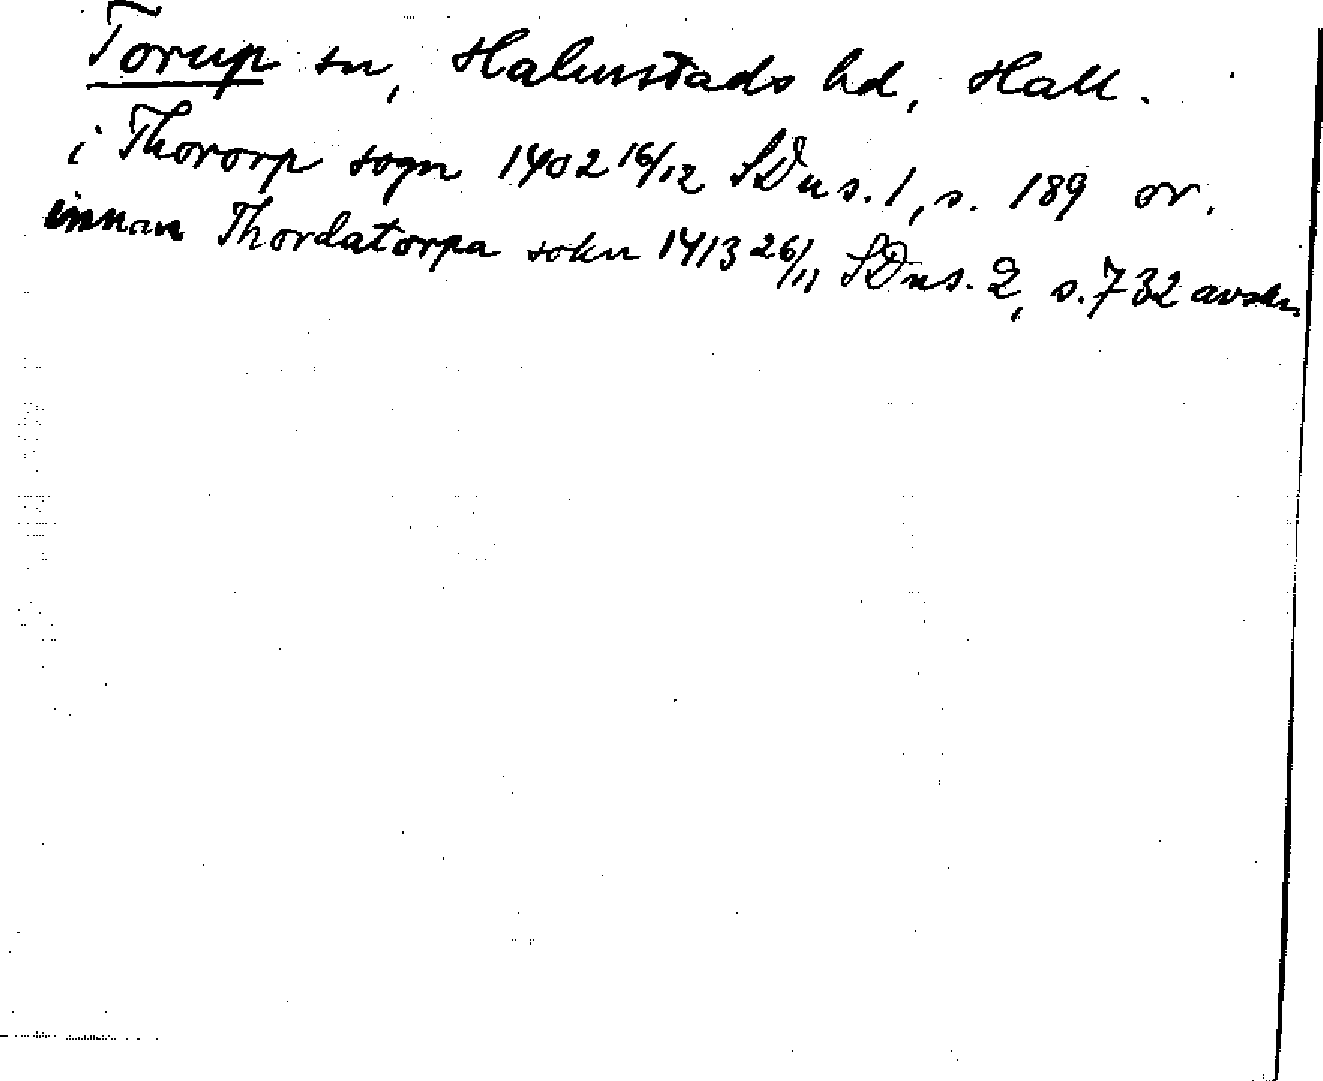 Torup sn, Halmstads hd, Hall.
i Thororp sogn 1402 16/12 SDns. 1, s. 189 or.
innan Thordatorpa sokn 1413 26/11 SDns. 2, s. 732 avskr.